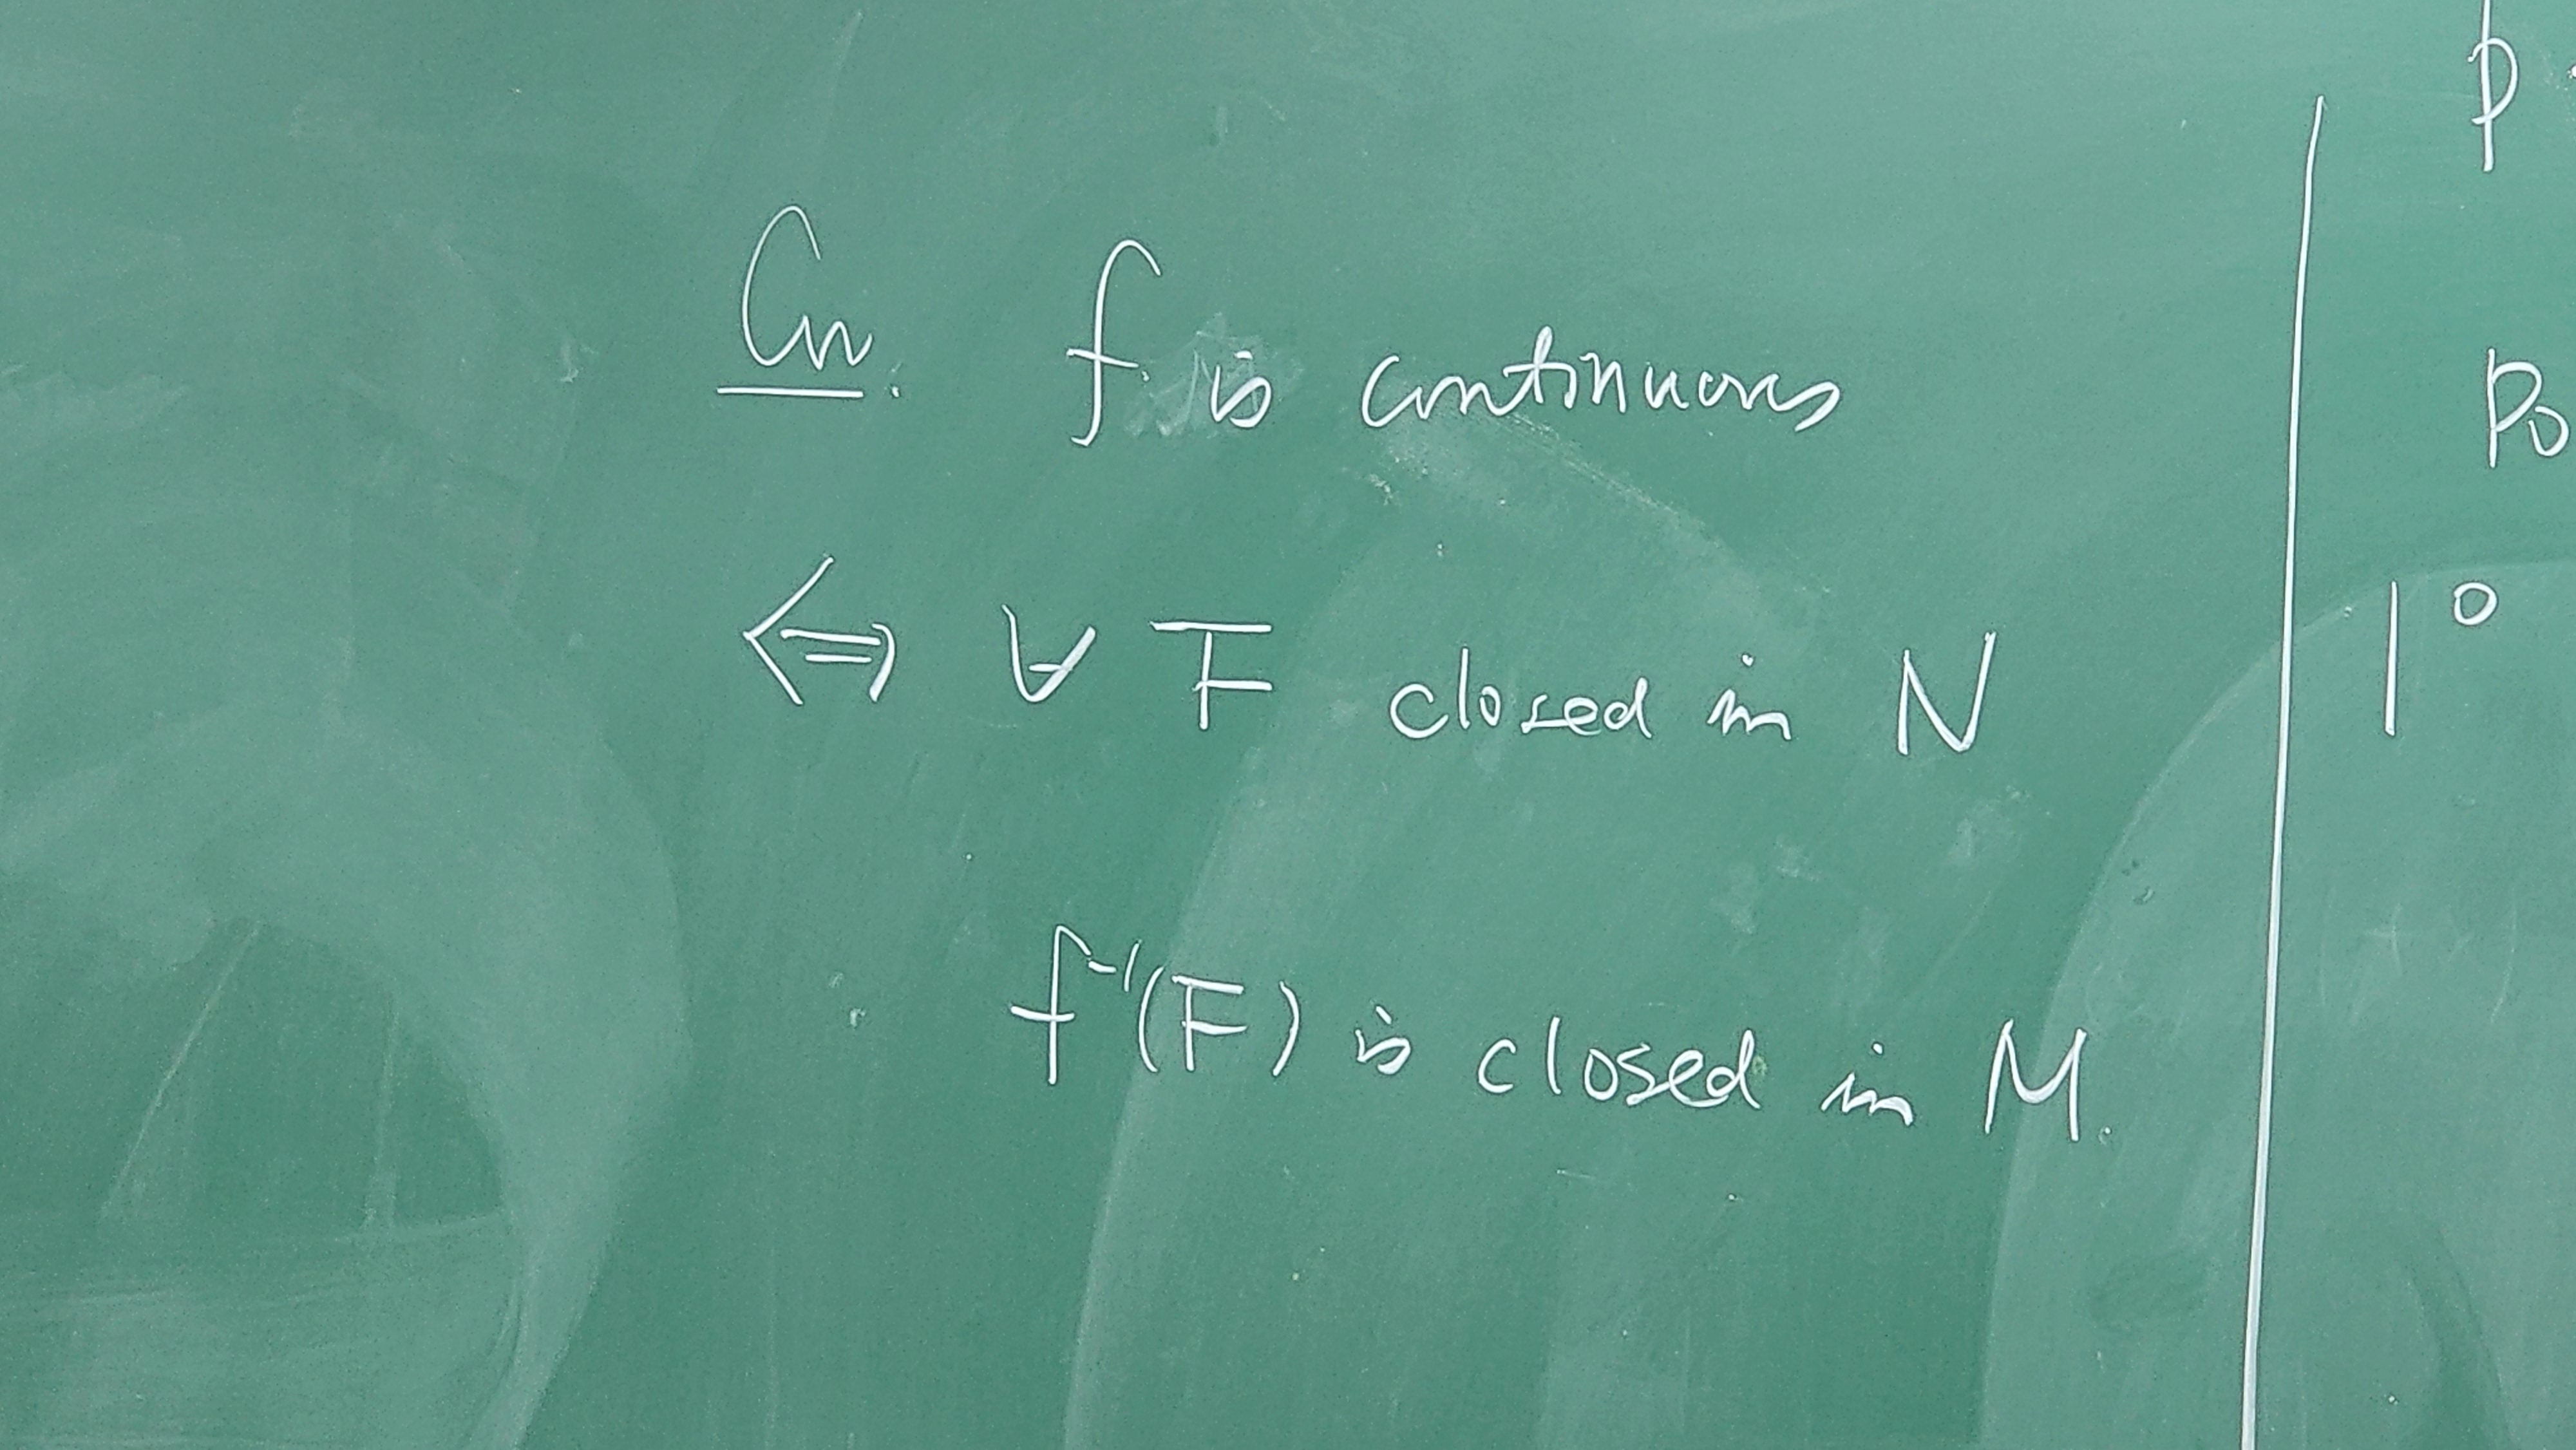 Cor. f is continuous
⇔ ∀ F closed in N
f⁻¹(F) is closed in M.
p
p₀
1°